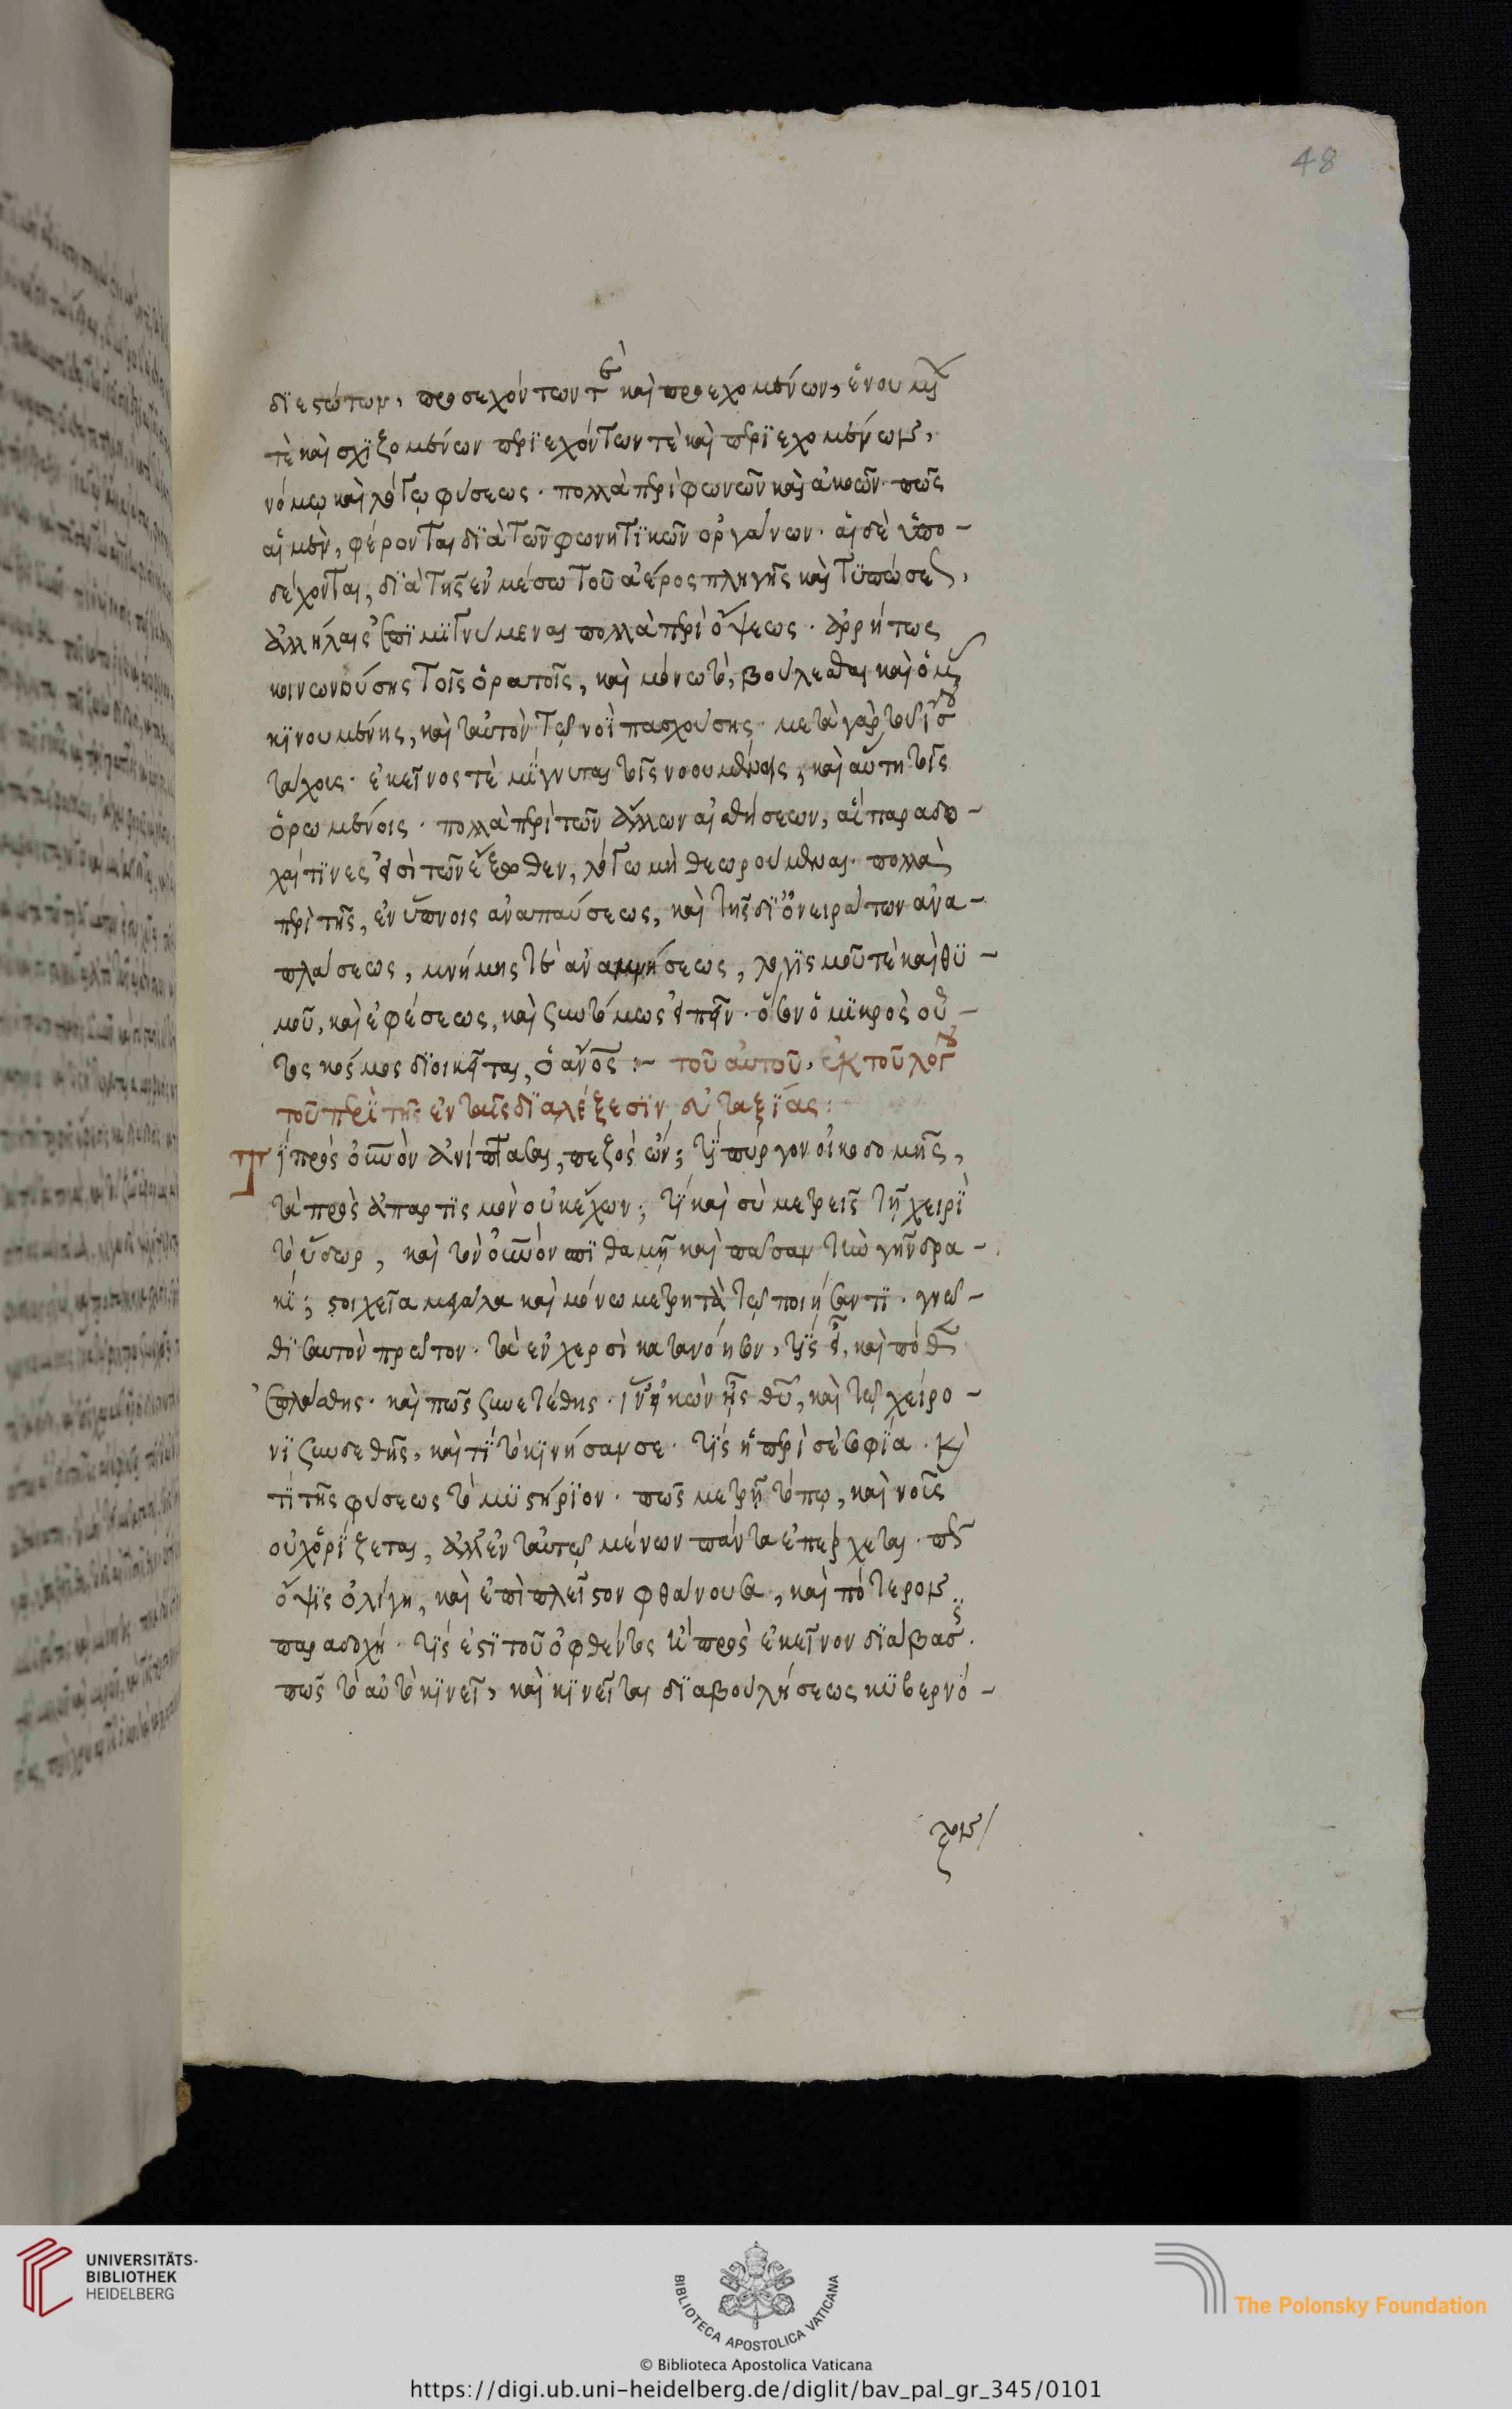 48
διεστώτων, προσεχόντων τὲ καὶ προεχομένων, ἑνουμένων
τὲ καὶ σχιζομένων περιεχόντων τὲ καὶ περιεχομένων,
νόμῳ καὶ λόγῳ φύσεως. πολλὰ περὶ φωνῶν καὶ ἀκοῶν. πῶς
αἱ μὲν, φέρονται διὰ τῶν φωνητικῶν ὀργάνων. αἱ δὲ ὑπο-
δέχονται, διὰ τῆς ἐν μέσω τοῦ ἀέρος πληγῆς καὶ τυπώσεως,
ἀλλήλαις ἐπιμιγνύμεναι πολλὰ περὶ ὄψεως. ἀρρήτως
κοινωνούσης τοῖς ὁρατοῖς, καὶ μόνω τὸ βούλεσθαι καὶ ὁμοῦ
κινουμένης, καὶ ταὐτὸν τῶ νοῒ πασχούσης. μετὰ γὰρ τοῦ ἴσου
τάχους. ἐκεῖνος τὲ μίγνυται τοῖς νοουμένοις, καὶ αὕτη τοῖς
ὁρωμένοις. πολλὰ περὶ τῶν ἄλλων αἰσθήσεων, αἳ παραδο-
χαί τινες εἰσὶ τῶν ἔξωθεν, λόγω μὴ θεωρούμεναι. πολλὰ
περὶ τῆς, ἐν ὕπνοις ἀναπαύσεως, καὶ τῆς δι' ὀνειράτων ἀνα-
πλάσεως, μνήμης τὲ ἀναμνήσεως, λογισμοῦ τὲ καὶ θυ-
μοῦ, καὶ ἐφέσεως, καὶ συντόμως εἰπεῖν. ὅσον ὁ μικρὸς οὗ-
τος κόσμος διοικεῖται, ὁ ἄνος :- τοῦ αὐτοῦ, ἐκ τοῦ λόγου
τοῦ περὶ τῆς ἐν ταῖς διαλέξεσιν εὐταξίας:
Τί πρὸς οὐνὸν ἀνίπτασαι, πεζὸς ὤν; τί πύργον οἰκοδομῆς,
τὰ πρὸς ἀπαρτισμὸν οὐκ ἔχων; τί καὶ σὺ μετρεῖς τῆ χειρὶ
τὸ ὕδωρ, καὶ τὸν οὐνὸν σπιθαμῆ καὶ πᾶσαν τὴν γῆν δρα-
κί; στοιχεῖα μεγάλα καὶ μόνω μετρητὰ τῶ ποιήσαντι. γνῶ-
θι σαυτὸν πρῶτον. τὰ ἐν χερσὶ κατανόησον, τίς εἶ, καὶ πόθεν
ἐπλάσθης. καὶ πῶς συνετέθης. ἵν' ἦ εἰκὼν ἦς θῦ, καὶ τῶ χείρο-
νι συνεδέθης, καὶ τί τὸ κινῆσαν σε. τίς ἡ περὶ σὲ σοφία. καὶ
τί τῆς φύσεως τὸ μυστήριον. πῶς μετρῆ τόπω, καὶ νοῦς
οὐ χωρίζεται, ἀλλ' ἐν ταὐτῶ μένων πάντα ἐπέρχεται. πῶς
ὄψις ὀλίγη, καὶ ἐπὶ πλεῖστον φθάνουσα, καὶ πότερον
παραδοχή. τίς ἐστὶ τοῦ ὀφθέντος ἢ πρὸς ἐκεῖνον διάβασις.
πῶς τὸ αὐτὸ κινεῖ, καὶ κινεῖται διὰ βουλήσεως κυβερνό-
UNIVERSITÄTS-
BIBLIOTHEK
HEIDELBERG
BIBLIOTECA APOSTOLICA VATICANA
The Polonsky Foundation
© Biblioteca Apostolica Vaticana
https://digi.ub.uni-heidelberg.de/diglit/bav_pal_gr_345/0101